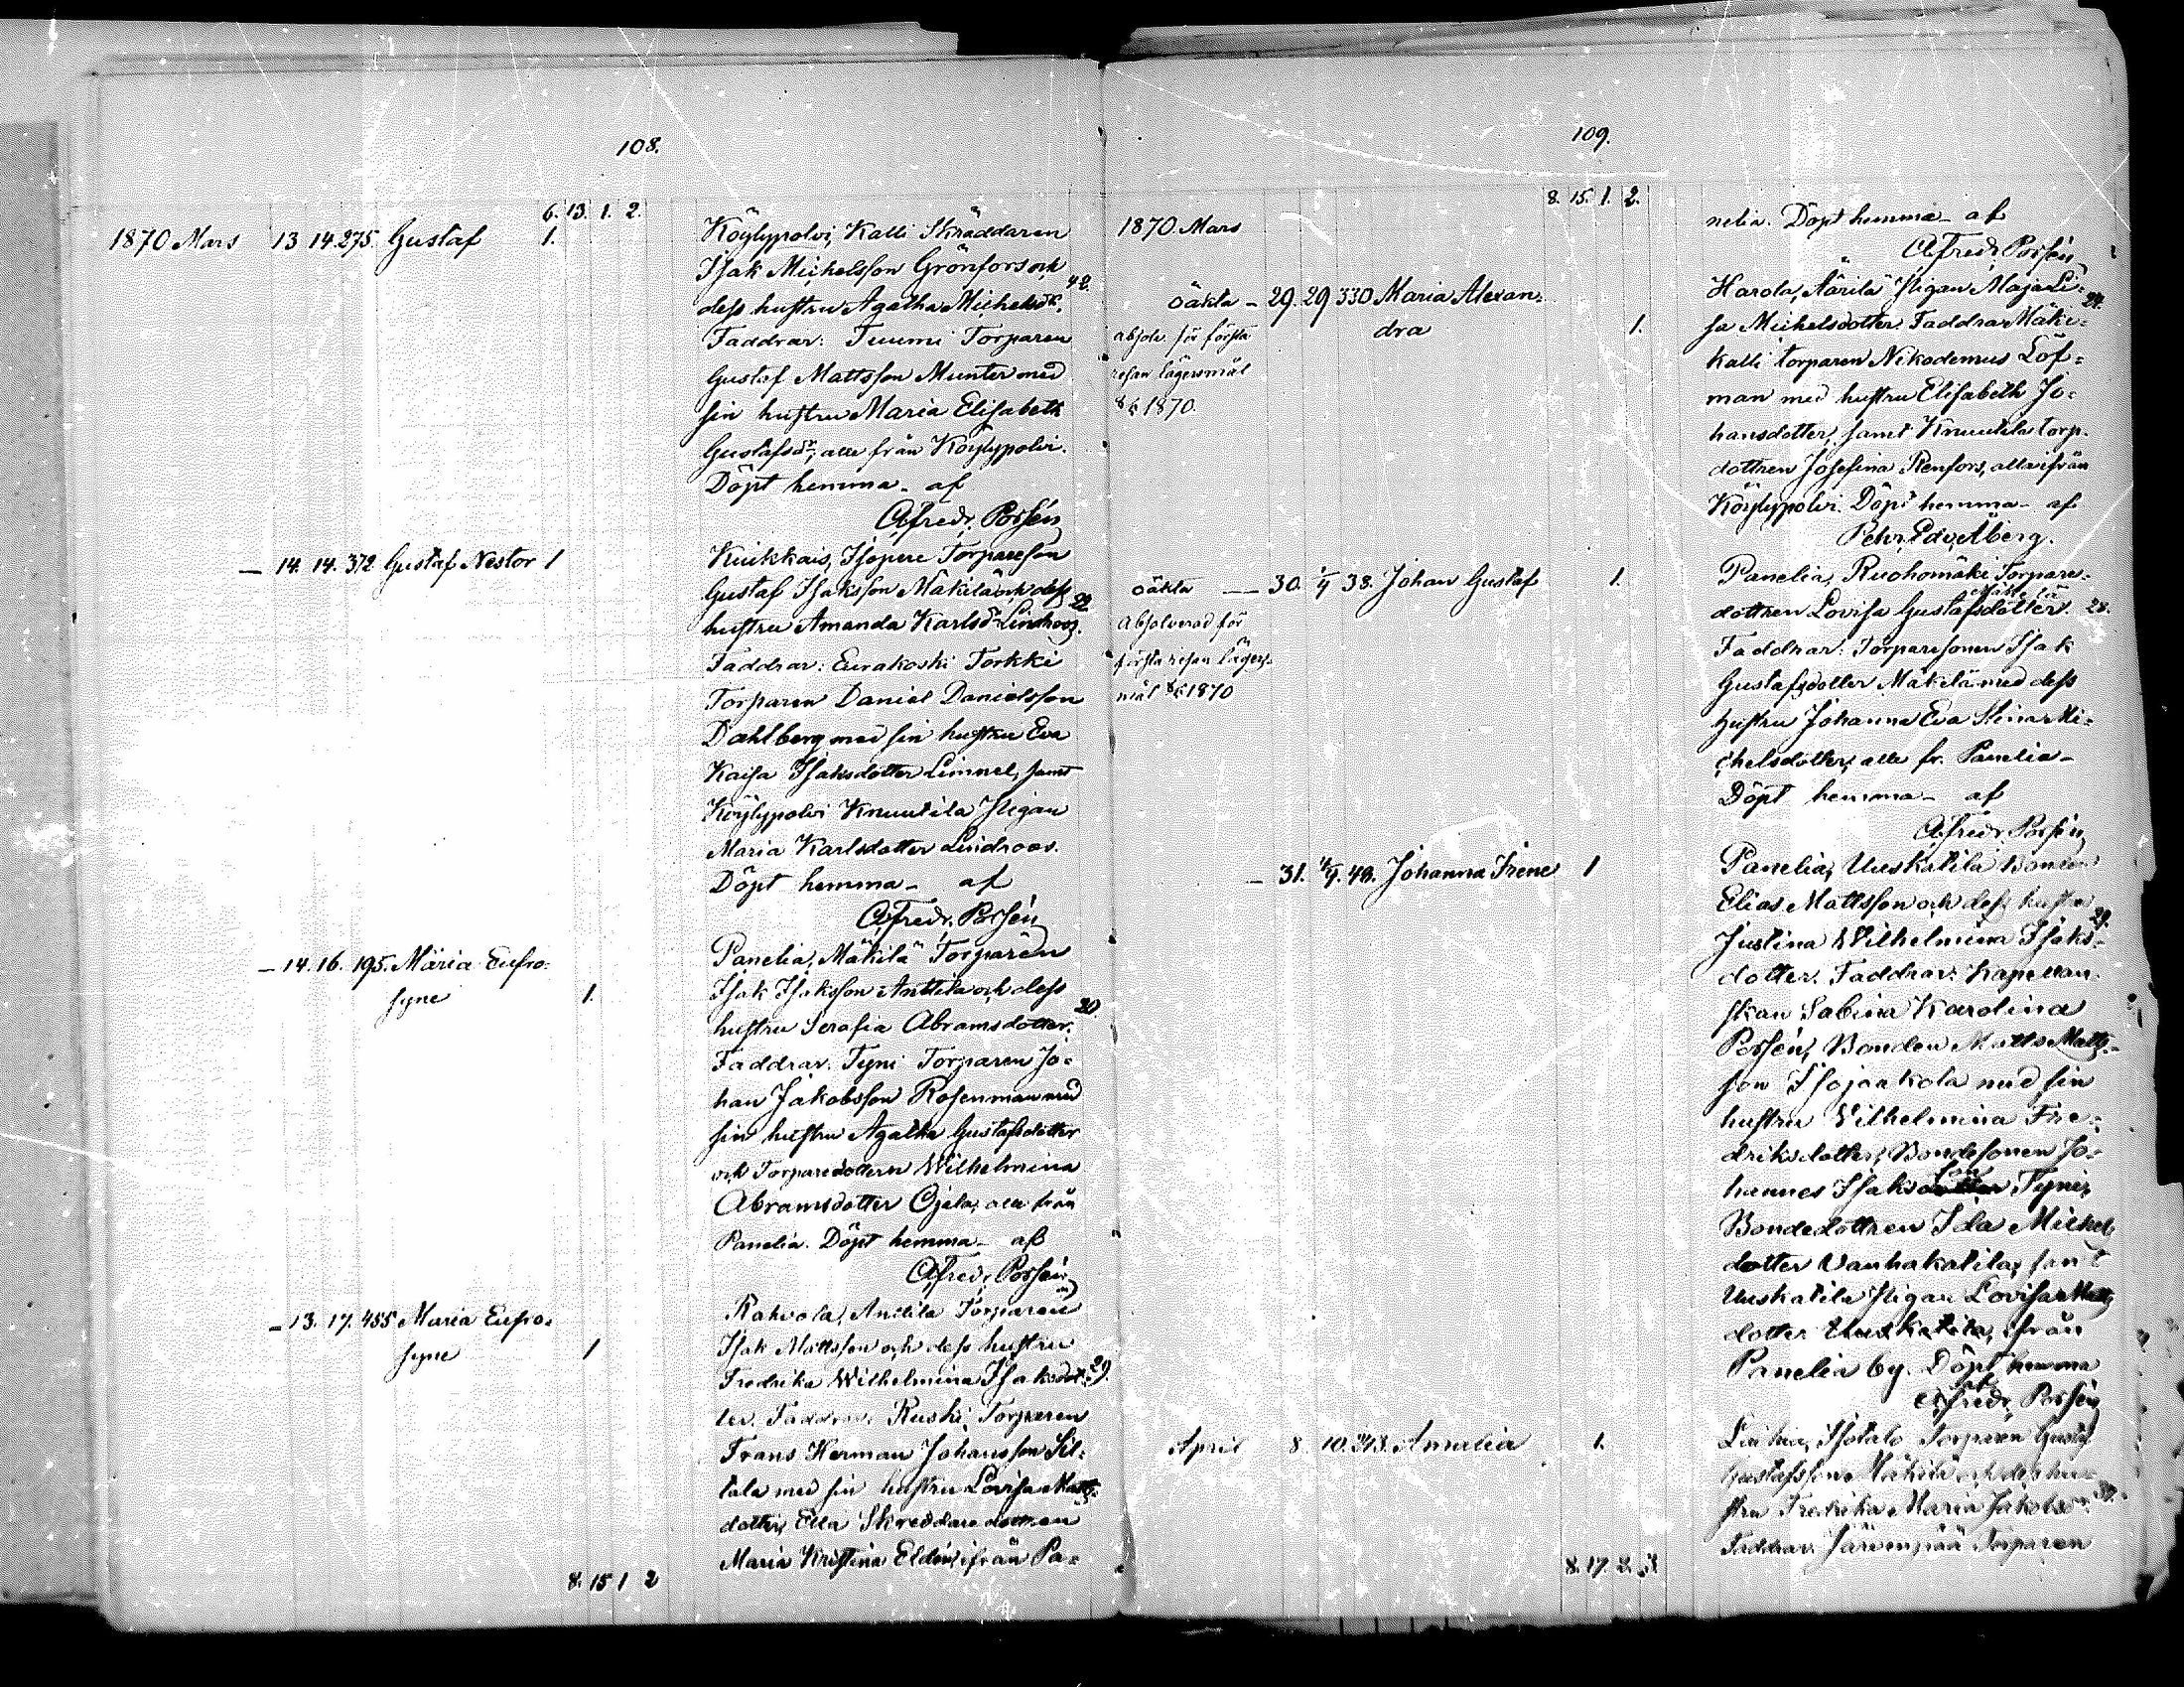 108.
6. 13. 1. 2.
1870 Mars 13 14. 275. Gustaf 1. Köylypolvi, Kalli Skräddaren
Isak Michelsson Grönfors och
dess hustru Agatha Michelsdr. 42.
Faddrar: Tuumi Torparen
Gustaf Mattsson Munter med
sin hustru Maria Elisabeth
Gustafsdr, alle från Köylypolvi.
Döpt hemma af
A. Fredr. Porsén
— 14. 14. 372 Gustaf Nestor 1 Kuikkais, Isopere Torpareson
Gustaf Isaksson Mäkilä och dess
hustru Amanda Karlsdr Lindroos. 22
Faddrar: Eurakoski Torkki
Torparen Daniel Danielsson
Dahlberg med sin hustru Eva
Kaisa Isaksdotter Linnel, samt
Köylypolvi Knuutila Pigan
Maria Karlsdotter Lindroos.
Döpt hemma af
A. Fredr. Porsén
— 14. 16. 195. Maria Eufro-
syne 1. Panelia, Mäkilä Torparen
Isak Isaksson Anttila och dess
hustru Serafia Abramsdotter. 20
Faddrar. Tyni Torparen Jo-
han Jakobsson Rosenman med
sin hustru Agatha Gustafsdotter
och Torparedottern Wilhelmina
Abramsdotter Ojala, alla från
Panelia. Döpt hemma af
A. Fredr. Porsén
— 13. 17. 455 Maria Eufro-
syne 1 Rahvola, Anttila Torparen
Isak Mattsson och dess hustru
Fredrika Wilhelmina Isaksdot- 29.
ter. Faddrar: Ruski Torparen
Frans Herman Johansson Sil-
tala med sin hustru Lovisa Matts-
dotter, Ella Skreddaredottren
Maria Kristina Eldin, ifrån Pa-
8. 15 1 2
109.
8. 15. 1. 2.
1870 Mars nelia. Döpt hemma af
A. Fredr. Porsén
oäkta — 29. 29 330 Maria Alexan-
dra 1. Harola, Äärilä Pigan Maja Li-
sa Michelsdotter. Faddrar Mäki- 24.
absolv. för första
resan lägersmål
8/5 1870.
kalli torparen Nikodemus Löf-
man med hustru Elisabeth Jo-
hansdotter, samt Knuutila torp.
dottren Josefina Renfors, alla ifrån
Köylypolvi. Döpt hemma af
Pehr Edv. Åberg.
oäkta — 30. 1/4 38. Johan Gustaf 1. Panelia, Ruohomäki Torpare-
dottren Lovisa Gustafsdotter. 28.
Absolverad för
första resan lägers-
mål 8/5 1870
Faddrar: Torparesonen Isak
Gustafsdotter Mäkelä med dess
hustru Johanna Eva Stina Mi-
chelsdotter, alle fr. Panelia
Döpt hemma af
A. Fredr. Porsén
— 31. 4/4. 48. Johanna Irene 1 Panelia, Uuskatila Bonden
Elias Mattsson och dess hustru
Justina Wilhelmina Isaks- 29.
dotter. Faddrar: Kapellan-
skan Sabina Karolina
Porsén, Bonden Matts Matts-
son Isojaakola med sin
hustru Wilhelmina Fre-
driksdotter, Bondesonen Jo-
hannes Isaksson Tyni,
Bondedottren Ida Michels
dotter Vanhakatila, samt
Uuskatila Pigan Lovisa Matts
dotter Uuskatila, ifrån
Panelia by. Döpt hemma
af
A. Fredr. Porsén
April 8. 10. 343. Amalia 1. Isotalo Torparen Gustaf
Gustafsson Mäkilä och dess hu-
stru Fredrika Maria Jakobsdr.
Faddrar. Järvenpää Torparen
8. 17. 2. 3.